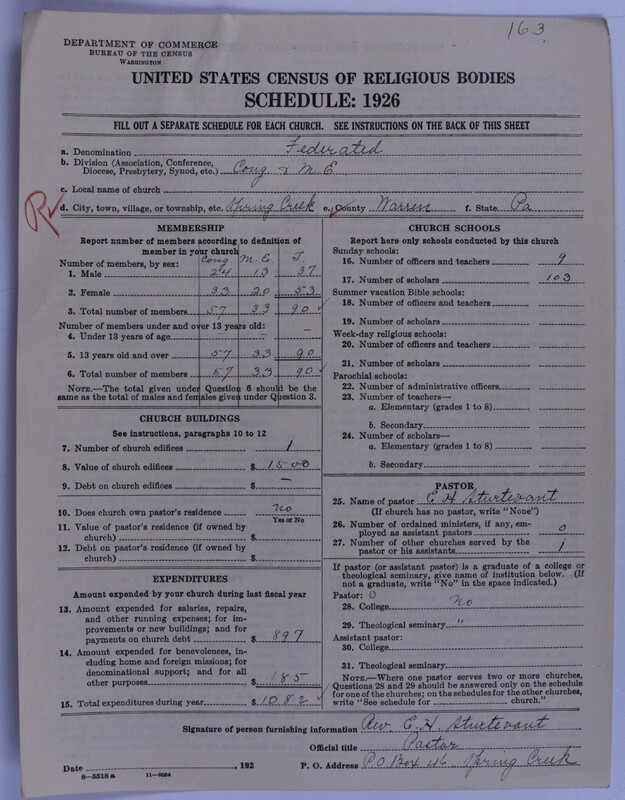 163
DEPARTMENT OF COMMERCE
BUREAU OF THE CENSUS
WASHINGTON
UNITED STATES CENSUS OF RELIGIOUS BODIES
SCHEDULE: 1926
FILL OUT A SEPARATE SCHEDULE FOR EACH CHURCH. SEE INSTRUCTIONS ON THE BACK OF THIS SHEET
a. Denomination Federated
b. Division (Association, Conference, Diocese, Presbytery, Synod, etc.) Cong & M. E
c. Local name of church
R d. City, town, village, or township, etc. Spring Creek e. County Warren f. State Pa
MEMBERSHIP
Report number of members according to definition of
member in your church
Number of members, by sex: Cong M. E. T
1. Male 24 13 37
2. Female 33 20 53
3. Total number of members 57 33 90
Number of members under and over 13 years old:
4. Under 13 years of age — — —
5. 13 years old and over 57 33 90
6. Total number of members 57 33 90
NOTE.—The total given under Question 6 should be
same as the total of males and females given under Question 3.
CHURCH BUILDINGS
See instructions, paragraphs 10 to 12
7. Number of church edifices 1
8. Value of church edifices $ 1500
9. Debt on church edifices $ —
10. Does church own pastor's residence no
Yes or No
11. Value of pastor's residence (if owned by
church) $
12. Debt on pastor's residence (if owned by
church) $
EXPENDITURES
Amount expended by your church during last fiscal year
13. Amount expended for salaries, repairs,
and other running expenses; for im-
provements or new buildings; and for
payments on church debt $ 897
14. Amount expended for benevolences, in-
cluding home and foreign missions; for
denominational support; and for all
other purposes $ 185
15. Total expenditures during year $ 1082
CHURCH SCHOOLS
Report here only schools conducted by this church
Sunday schools:
16. Number of officers and teachers 9
17. Number of scholars 103
Summer vacation Bible schools:
18. Number of officers and teachers
19. Number of scholars
Week-day religious schools:
20. Number of officers and teachers
21. Number of scholars
Parochial schools:
22. Number of administrative officers
23. Number of teachers—
a. Elementary (grades 1 to 8)
b. Secondary
24. Number of scholars—
a. Elementary (grades 1 to 8)
b. Secondary
PASTOR
25. Name of pastor E H Sturtevant
(If church has no pastor, write "None")
26. Number of ordained ministers, if any, em-
ployed as assistant pastors 0
27. Number of other churches served by the
pastor or his assistants 1
If pastor (or assistant pastor) is a graduate of a college or
theological seminary, give name of institution below. (If
not a graduate, write "No" in the space indicated.)
Pastor: 0
28. College no
29. Theological seminary "
Assistant pastor:
30. College
31. Theological seminary
NOTE.—Where one pastor serves two or more churches,
Questions 28 and 29 should be answered only on the schedule
for one of the churches; on the schedules for the other churches,
write "See schedule for church."
Signature of person furnishing information Rev E. H. Sturtevant
Official title Pastor
Date , 192 P. O. Address P.O Box 46 Spring Creek
8-5518a 11-9084